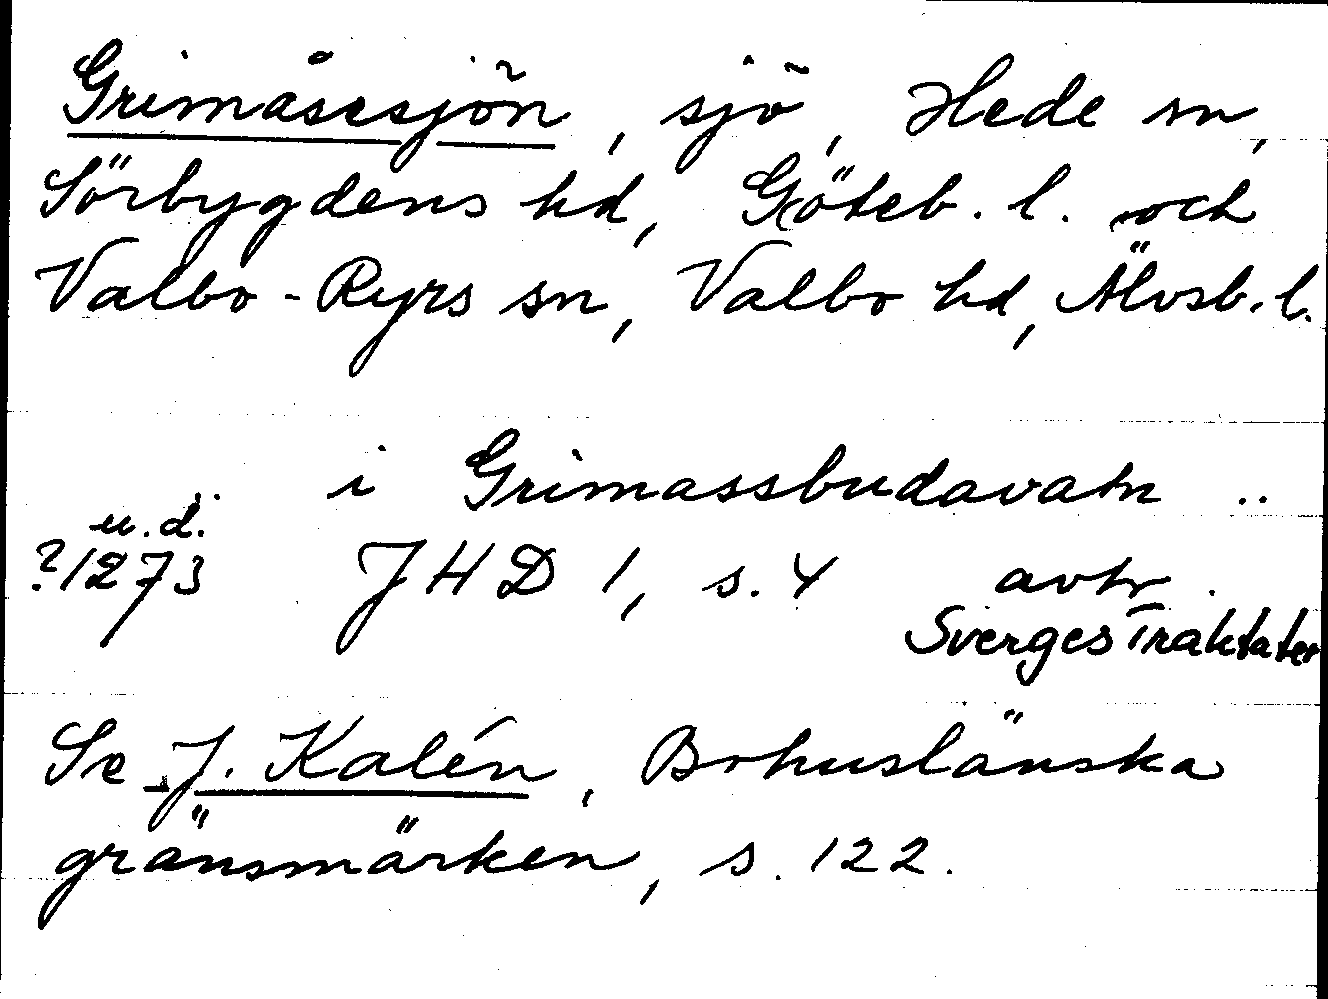 Grimåsesjön, sjö, Hede sn,
Sörbygdens hd, Göteb. l. och
Valbo-Ryrs sn, Valbo hd, Älvsb. l.
i Grimassbudavatn ..
u.d.
?1273 JHD 1, s. 4 avtr.
Sverges Traktater
Se J. Kalén, Bohuslänska
gränsmärken, s. 122.